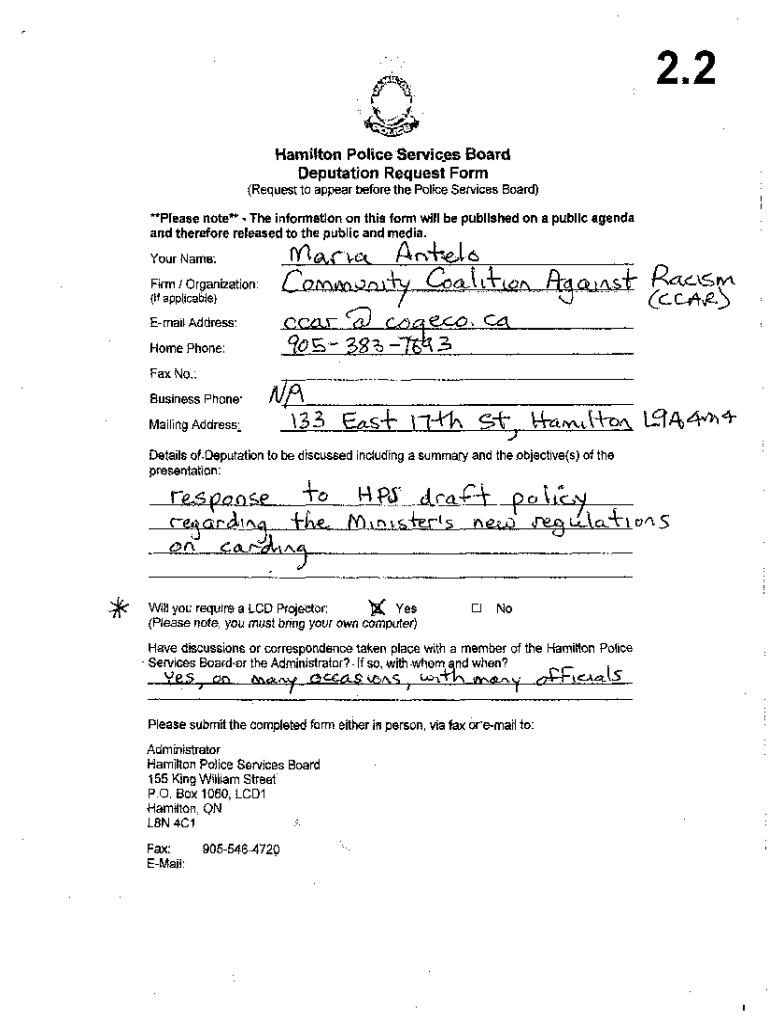 2.2
HAMILTON
POLICE
Hamilton Police Services Board
Deputation Request Form
(Request to appear before the Police Services Board)
**Please note** - The information on this form will be published on a public agenda
and therefore released to the public and media.
Your Name: Maria Antelo
Firm / Organization: Community Coalition Against Racism
(if applicable) (CCAR)
E-mail Address: ccar@cogeco.ca
Home Phone: 905-383-7693
Fax No.:
Business Phone: NA
Mailing Address: 133 East 17th St, Hamilton L9A4m4
Details of Deputation to be discussed including a summary and the objective(s) of the
presentation:
response to HPS draft policy
regarding the Minister's new regulations
on carding
* Will you require a LCD Projector: X Yes ☐ No
(Please note, you must bring your own computer)
Have discussions or correspondence taken place with a member of the Hamilton Police
Services Board or the Administrator? If so, with whom and when?
Yes, on many occasions, with many officials
Please submit the completed form either in person, via fax or e-mail to:
Administrator
Hamilton Police Services Board
155 King William Street
P.O. Box 1060, LCD1
Hamilton, ON
L8N 4C1
Fax: 905-546-4720
E-Mail: